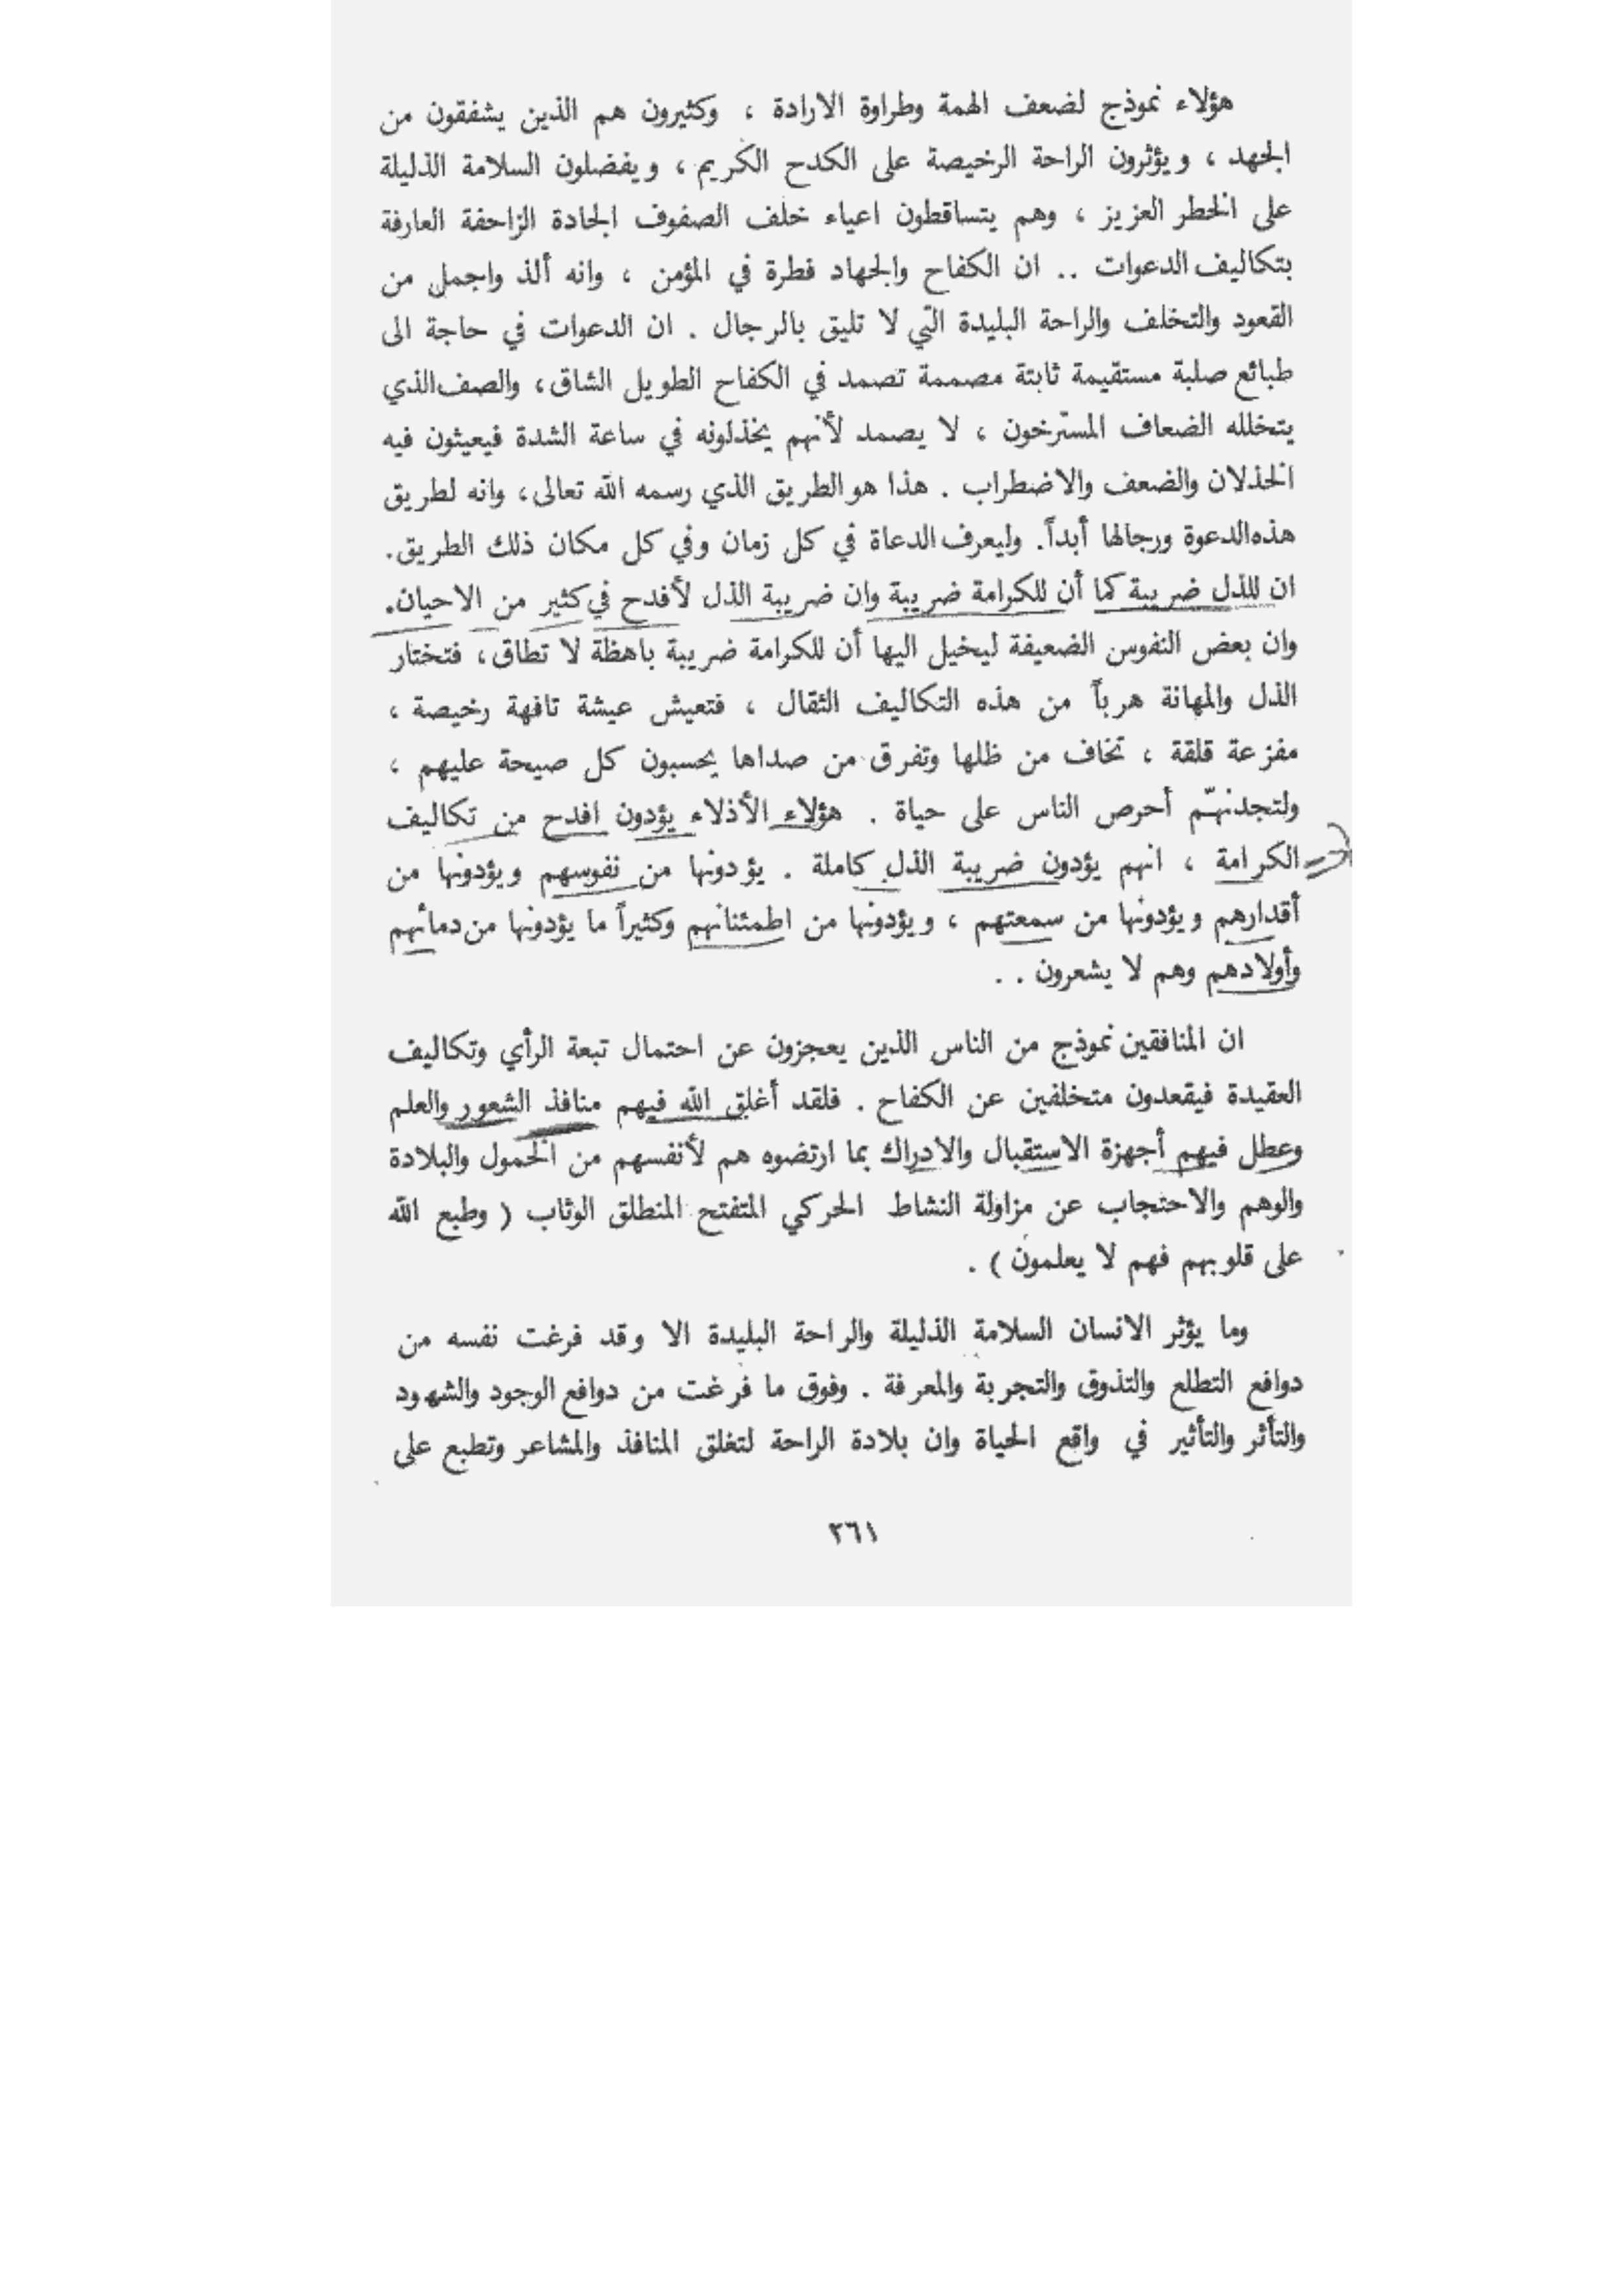 هؤلاء نموذج لضعف الهمة وطراوة الارادة ، وكثيرون هم الذين يشفقون من
الجهد ، ويؤثرون الراحة الرخيصة على الكدح الكريم ، ويفضلون السلامة الذليلة
على الخطر العزيز ، وهم يتساقطون اعياء خلف الصفوف الجادة الزاحفة العارفة
بتكاليف الدعوات .. ان الكفاح والجهاد فطرة في المؤمن ، وانه ألذ واجمل من
القعود والتخلف والراحة البليدة التي لا تليق بالرجال . ان الدعوات في حاجة الى
طبائع صلبة مستقيمة ثابتة مصممة تصمد في الكفاح الطويل الشاق ، والصف الذي
يتخلله الضعاف المسترخون ، لا يصمد لأنهم يخذلونه في ساعة الشدة فيعيثون فيه
الخذلان والضعف والاضطراب . هذا هو الطريق الذي رسمه الله تعالى ، وانه لطريق
هذه الدعوة ورجالها أبداً . وليعرف الدعاة في كل زمان وفي كل مكان ذلك الطريق .
ان للذل ضريبة كما أن للكرامة ضريبة وان ضريبة الذل لأفدح في كثير من الاحيان .
وان بعض النفوس الضعيفة ليخيل اليها أن للكرامة ضريبة باهظة لا تطاق ، فتختار
الذل والمهانة هرباً من هذه التكاليف الثقال ، فتعيش عيشة تافهة رخيصة ،
مفزعة قلقة ، تخاف من ظلها وتفرق من صداها يحسبون كل صيحة عليهم ،
ولتجدنهّم أحرص الناس على حياة . هؤلاء الأذلاء يؤدون افدح من تكاليف
الكرامة ، انهم يؤدون ضريبة الذل كاملة . يؤدونها من نفوسهم ويؤدونها من
أقدارهم ويؤدونها من سمعتهم ، ويؤدونها من اطمئنانهم وكثيراً ما يؤدونها من دمائهم
وأولادهم وهم لا يشعرون ..
ان المنافقين نموذج من الناس الذين يعجزون عن احتمال تبعة الرأي وتكاليف
العقيدة فيقعدون متخلفين عن الكفاح . فلقد أغلق الله فيهم منافذ الشعور والعلم
وعطل فيهم أجهزة الاستقبال والادراك بما ارتضوه هم لأنفسهم من الخمول والبلادة
والوهم والاحتجاب عن مزاولة النشاط الحركي المتفتح المنطلق الوثاب ( وطبع الله
على قلوبهم فهم لا يعلمون ) .
وما يؤثر الانسان السلامة الذليلة والراحة البليدة الا وقد فرغت نفسه من
دوافع التطلع والتذوق والتجربة والمعرفة . وفوق ما فرغت من دوافع الوجود والشهود
والتأثر والتأثير في واقع الحياة وان بلادة الراحة لتغلق المنافذ والمشاعر وتطبع على
٢٦١